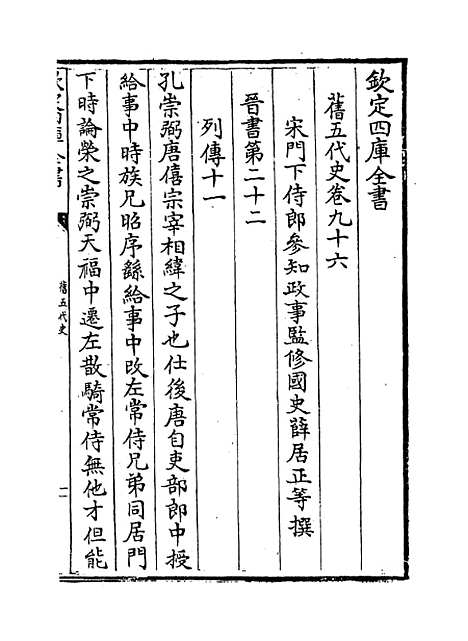 欽定四庫全書
舊五代史卷九十六
宋門下侍郎參知政事監修國史薛居正等撰
晉書第二十二
列傳十一
孔崇弼唐僖宗宰相緯之子也仕後唐自吏部郎中授
給事中時族兄昭序繇給事中改左常侍兄弟同居門
下時論榮之崇弼天福中遷左散騎常侍無他才但能
舊五代史